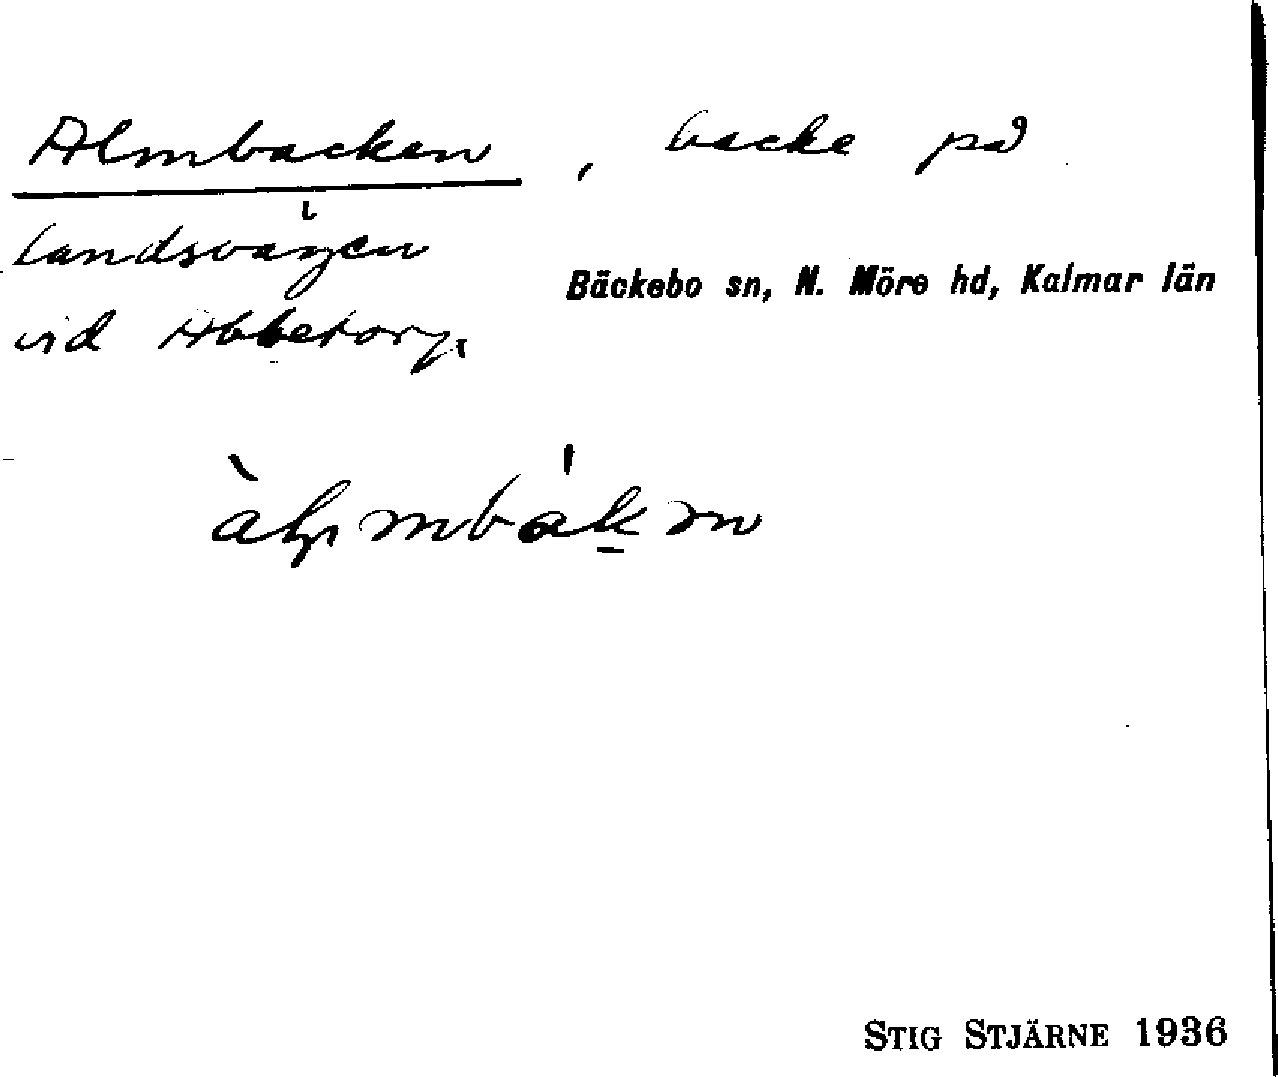 Almbacken, backe på
landsvägen
Bäckebo sn, N. Möre hd, Kalmar län
vid Abbetorp.
STIG STJÄRNE 1936